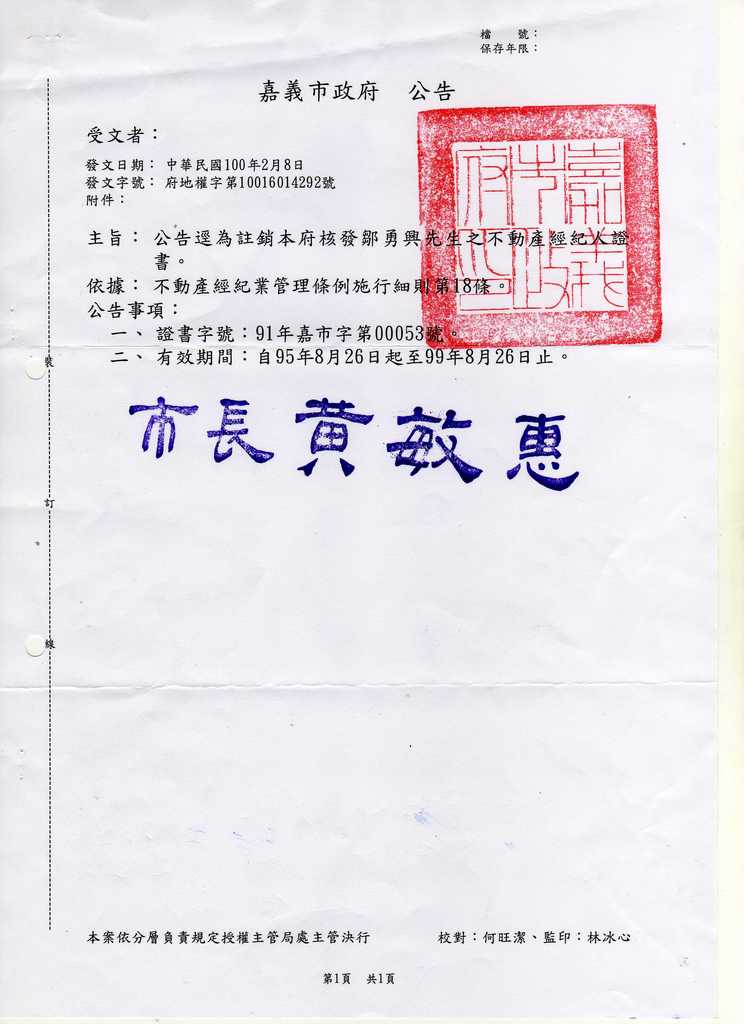 檔　　號：
保存年限：
嘉義市政府　公告
受文者：
發文日期：中華民國100年2月8日
發文字號：府地權字第10016014292號
附件：
嘉義市政府印
主旨：公告逕為註銷本府核發鄒勇興先生之不動產經紀人證
書。
依據：不動產經紀業管理條例施行細則第18條。
公告事項：
一、證書字號：91年嘉市字第00053號。
二、有效期間：自95年8月26日起至99年8月26日止。
裝
市長黃敏惠
訂
線
本案依分層負責規定授權主管局處主管決行　校對：何旺潔、監印：林冰心
第1頁　共1頁